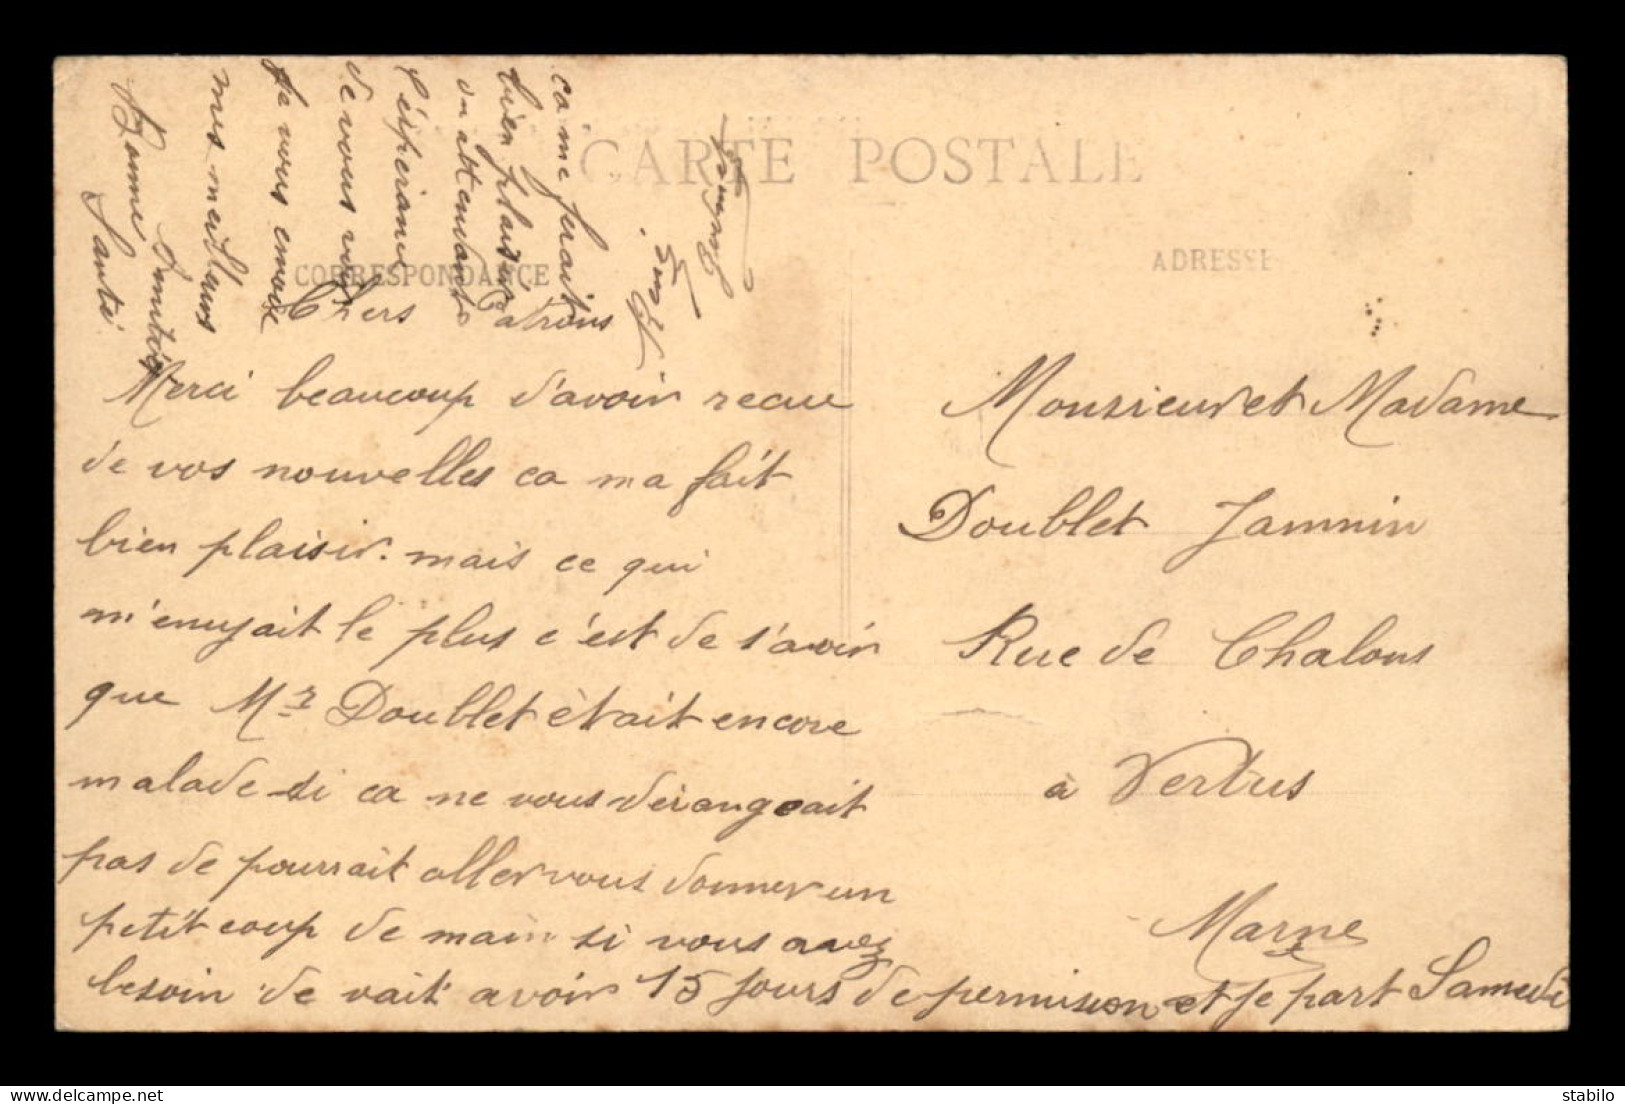 CARTE POSTALE
CORRESPONDANCE
ADRESSE
Chers Patrons
Merci beaucoup d'avoir recue
de vos nouvelles ca ma fait
bien plaisir. mais ce qui
m'enuyait le plus c'est de s'avoir
que Mr Doublet ètait encore
malade si ca ne vous dérangeait
pas de pourrait aller vous donner un
petit coup de main si vous avez
besoin de vait avoir 15 jours de permision et je part Samedi
ca me ferait
bien plaisir
en attendant
l'éspérance
de vous voir
Je vous envoie
mes meilleurs
Amitiés
Bonne Santé
Monsieur et Madame
Doublet Jamnin
Rue de Chalons
à Vertus
Marne
delcampe.net
stabilo